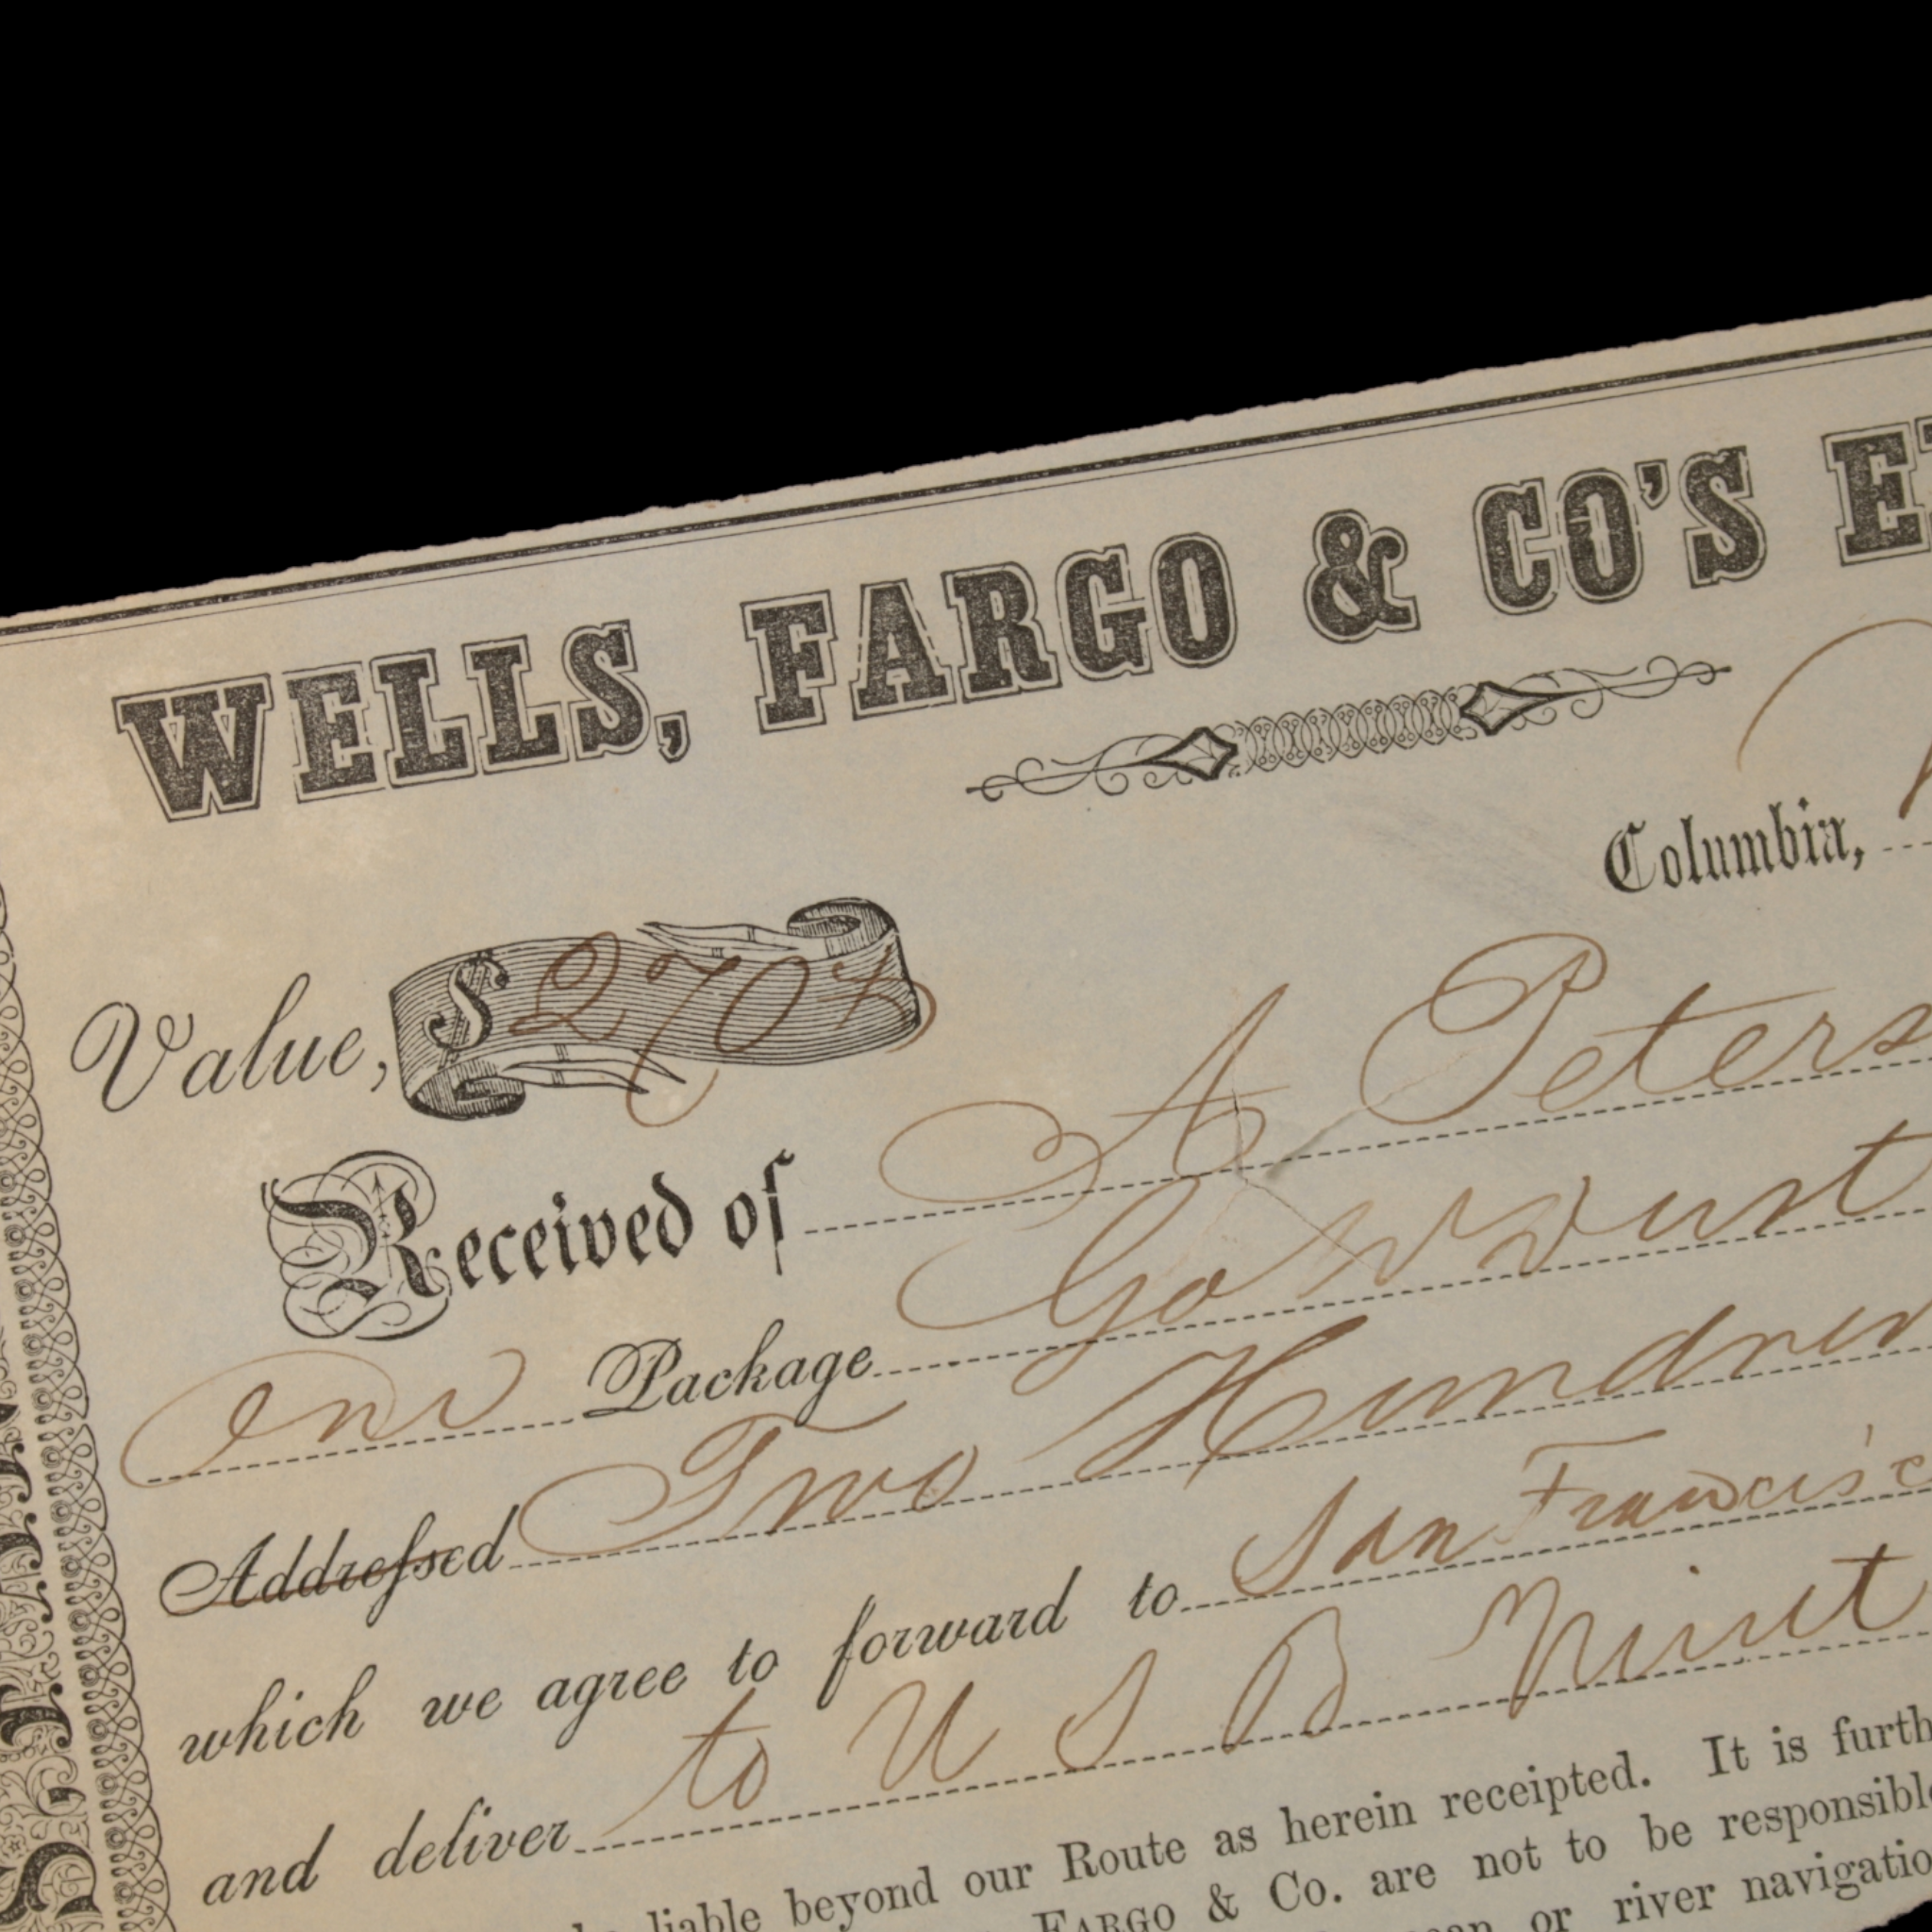 WELLS, FARGO & CO'S
Columbia,
Value, $ 270
Received of A Peters
One Package Go
Addressed Two Hundred
which we agree to forward to San Francisc
and deliver to U S B Mint
liable beyond our Route as herein receipted. It is furth
FARGO & Co. are not to be responsible
or river navigatio